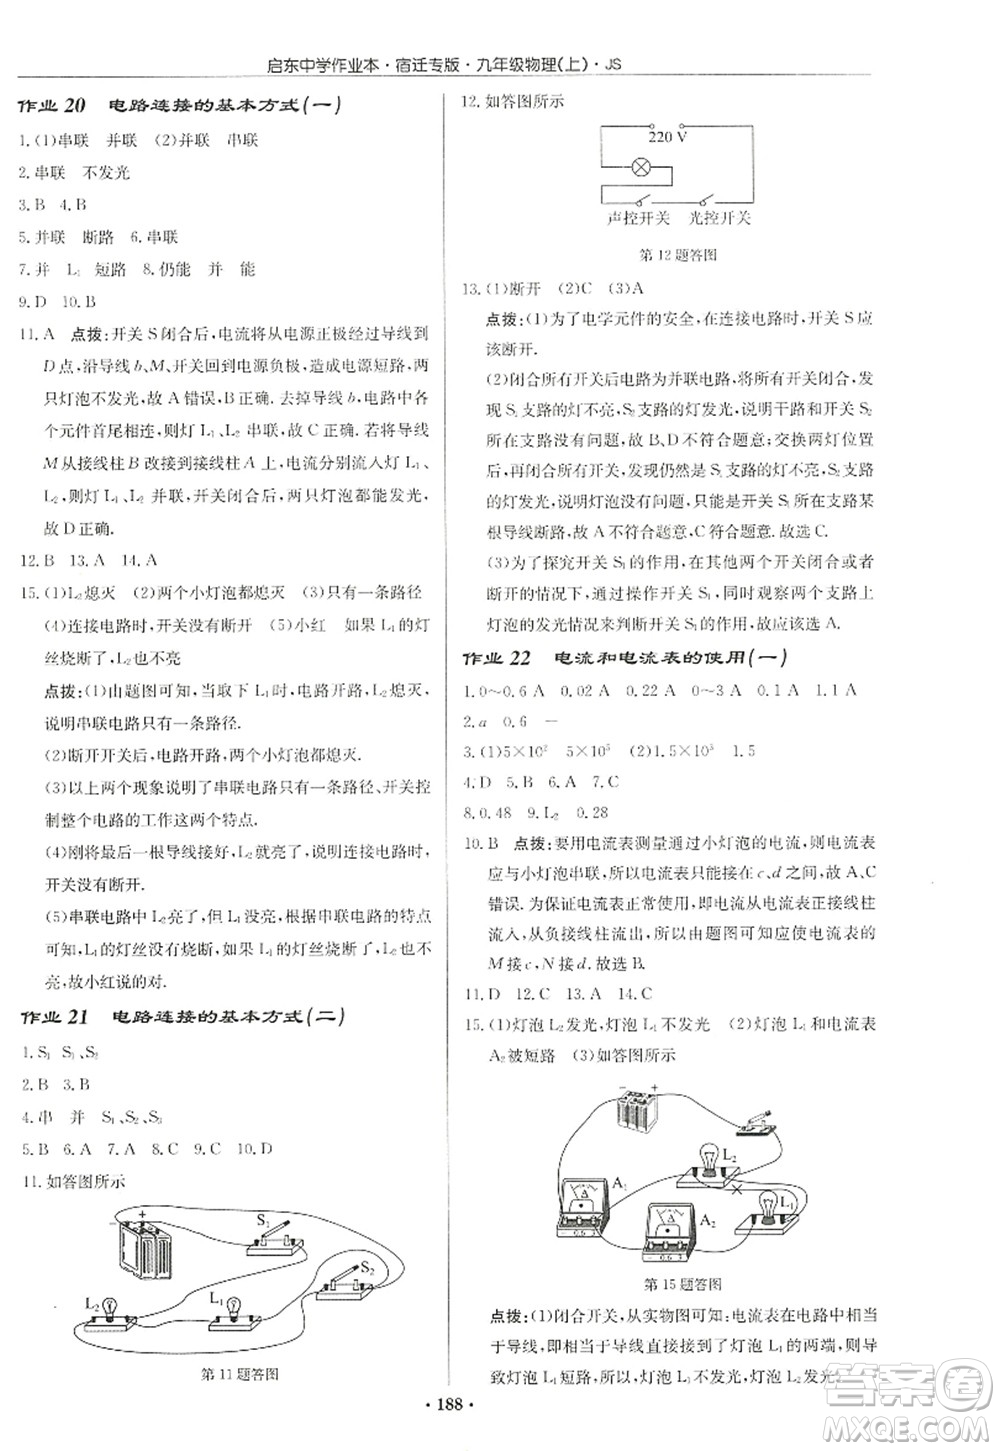 启东中学作业本·宿迁专版·九年级物理(上)·JS
作业 20 电路连接的基本方式(一)
1.(1)串联 并联 (2)并联 串联
2.串联 不发光
3.B 4.B
5.并联 断路 6.串联
7.并 L₁ 短路 8.仍能 并 能
9.D 10.B
11.A 点拨:开关 S 闭合后,电流将从电源正极经过导线到
D 点,沿导线 b、M、开关回到电源负极,造成电源短路,两
只灯泡不发光,故 A 错误,B 正确.去掉导线 b,将电路中各
个元件首尾相连,则灯 L₁、L₂ 串联,故 C 正确.若将导线
M 从接线柱 B 改接到接线柱 A 上,电流分别流入灯 L₁、
L₂,则灯 L₁、L₂ 并联,开关闭合后,两只灯泡都能发光,
故 D 正确.
12.B 13.A 14.A
15.(1)L₂熄灭 (2)两个小灯泡都熄灭 (3)只有一条路径
(4)连接电路时,开关没有断开 (5)小红 如果 L₁的灯
丝烧断了,L₂也不亮
点拨:(1)由题图可知,当取下 L₁时,电路开路,L₂熄灭,
说明串联电路只有一条路径.
(2)断开开关后,电路开路,两个小灯泡都熄灭.
(3)以上两个现象说明了串联电路只有一条路径、开关控
制整个电路的工作这两个特点.
(4)刚将最后一根导线接好,L₂就亮了,说明连接电路时,
开关没有断开.
(5)串联电路中 L₂亮了,但 L₁没亮,根据串联电路的特点
可知,L₁的灯丝没有烧断,如果 L₁的灯丝断了,L₂也不
亮,故小红说的对.
作业 21 电路连接的基本方式(二)
1.S₁ S₁、S₂
2.B 3.B
4.串 并 S₁、S₂、S₃
5.B 6.C 7.A 8.C 9.C 10.D
11.如答图所示
− +
S₁
S₂
L₂
L₁
第 11 题答图
12.如答图所示
220 V
声控开关 光控开关
第 12 题答图
13.(1)断开 (2)C (3)A
点拨:(1)为了电学元件的安全,在连接电路时,开关 S 应
该断开.
(2)闭合所有开关后电路为并联电路,两开关闭合,发
现 S₁支路的灯不亮,S₂支路的灯发光,说明干路和 S₂
支路没有问题,故 B、D 不符合题意;交换两灯位置
后,再闭合所有开关,发现仍然是 S₁支路的灯不亮,S₂支路
的灯发光,说明灯泡没有问题,只能是开关 S₁所在支路某
根导线断路,故 A 不符合题意,C 符合题意.故选 C.
(3)为了探究开关 S₁的作用,需要在其他开关都闭合或者
断开的情况下,通过操作开关 S₁,同时观察两个支路上
灯泡的发光情况来判断开关 S₁的作用,故 A 符合题意.
作业 22 电流和电流表的使用(一)
1.0～0.6 A 0.02 A 0.22 A 0～3 A 0.1 A 1.1 A
2.a 0.6 −
3.(1)5×10² 5×10⁵ (2)1.5×10³ 1.5
4.D 5.B 6.A 7.C
8.0.48 9.L₂ 0.28
10.B 点拨:要用电流表测量通过小灯泡的电流,则电流表
应与小灯泡串联,所以电流表只能接在 c、d 之间,故 A、C
错误.为保证电流表正常使用,即电流从电流表正接线柱
流入,从负接线柱流出,所以由题图可知应使电流表的
M 接 c,N 接 d.故选 B.
11.D 12.C 13.A 14.C
15.(1)灯泡 L₂发光,灯泡 L₁不发光 (2)灯泡 L₁和电流表
A₂被短路 (3)如答图所示
− +
L₂
A₁
L₁
A₂
第 15 题答图
点拨:(1)闭合开关,从实物图可知:电流表在电路中相当
于导线,即相当于导线直接接到了灯泡 L₁的两端,所以导
致灯泡 L₁短路,所以灯泡 L₂发光,灯泡 L₁不发光.
答案圈
MXQE.COM
·188·